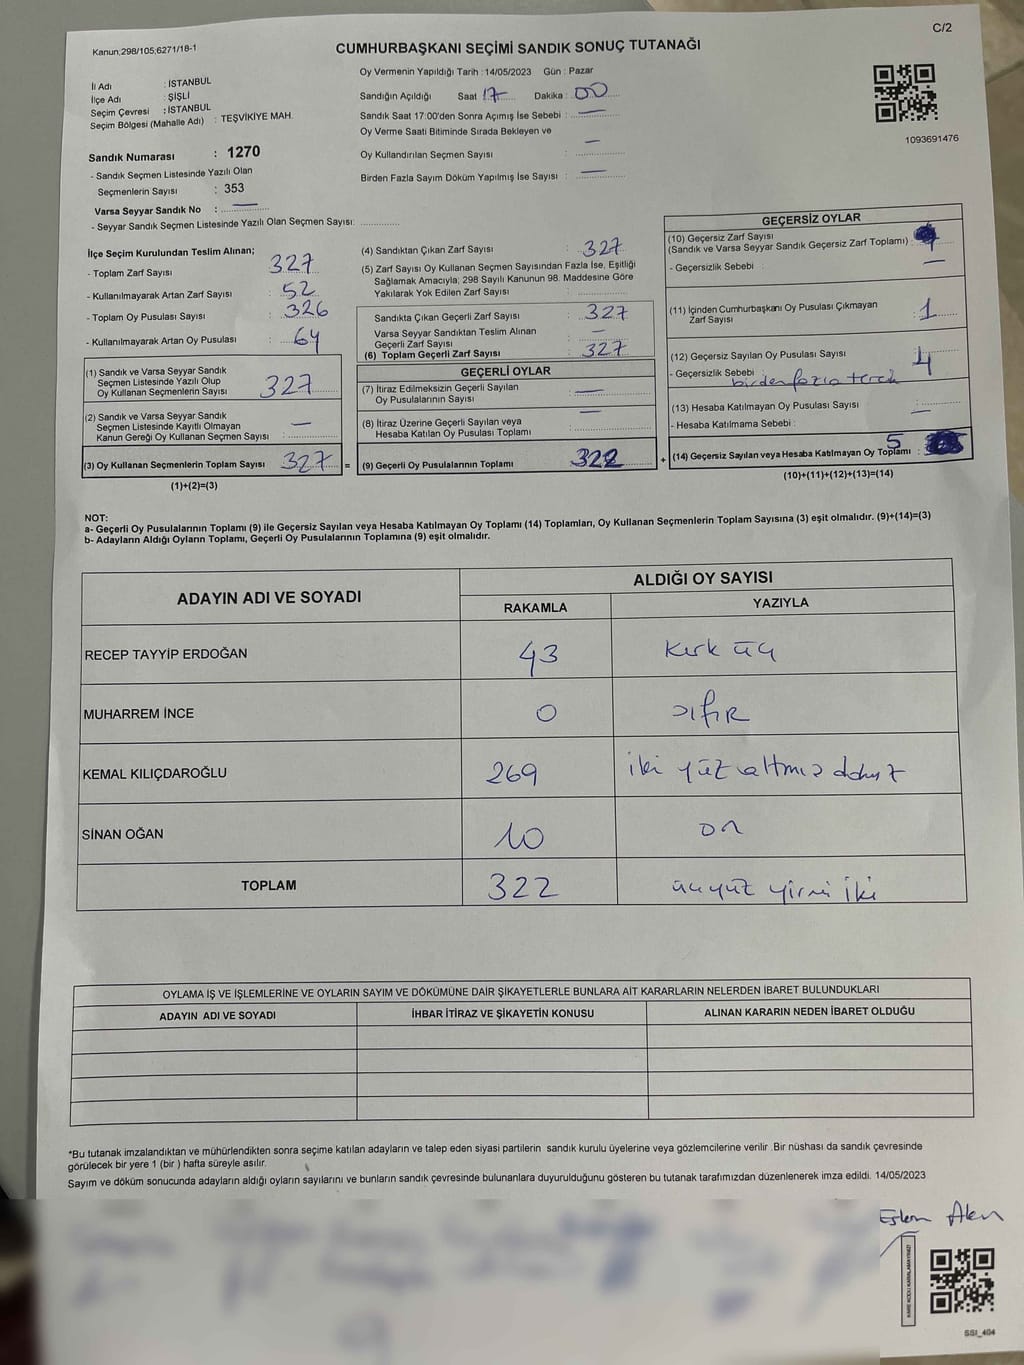 C/2
Kanun;298/105;6271/18-1
CUMHURBAŞKANI SEÇİMİ SANDIK SONUÇ TUTANAĞI
İl Adı : İSTANBUL
İlçe Adı : ŞİŞLİ
Seçim Çevresi : İSTANBUL
Seçim Bölgesi (Mahalle Adı) : TEŞVİKİYE MAH.
Oy Vermenin Yapıldığı Tarih : 14/05/2023 Gün : Pazar
Sandığın Açıldığı Saat 17 Dakika : 00
Sandık Saat 17:00'den Sonra Açımış İse Sebebi : —
Oy Verme Saati Bitiminde Sırada Bekleyen ve
Oy Kullandırılan Seçmen Sayısı : —
Birden Fazla Sayım Döküm Yapılmış İse Sayısı : —
1093691476
Sandık Numarası : 1270
- Sandık Seçmen Listesinde Yazılı Olan
Seçmenlerin Sayısı : 353
Varsa Seyyar Sandık No : —
- Seyyar Sandık Seçmen Listesinde Yazılı Olan Seçmen Sayısı:
İlçe Seçim Kurulundan Teslim Alınan;
- Toplam Zarf Sayısı 327
- Kullanılmayarak Artan Zarf Sayısı : 52
- Toplam Oy Pusulası Sayısı : 326
- Kullanılmayarak Artan Oy Pusulası : 64
(1) Sandık ve Varsa Seyyar Sandık
Seçmen Listesinde Yazılı Olup
Oy Kullanan Seçmenlerin Sayısı : 327
(2) Sandık ve Varsa Seyyar Sandık
Seçmen Listesinde Kayıtlı Olmayan
Kanun Gereği Oy Kullanan Seçmen Sayısı : —
(3) Oy Kullanan Seçmenlerin Toplam Sayısı : 327 =
(1)+(2)=(3)
(4) Sandıktan Çıkan Zarf Sayısı : 327
(5) Zarf Sayısı Oy Kullanan Seçmen Sayısından Fazla İse, Eşitliği
Sağlamak Amacıyla; 298 Sayılı Kanunun 98. Maddesine Göre
Yakılarak Yok Edilen Zarf Sayısı :
Sandıkta Çıkan Geçerli Zarf Sayısı : 327
Varsa Seyyar Sandıktan Teslim Alınan
Geçerli Zarf Sayısı : —
(6) Toplam Geçerli Zarf Sayısı : 327
GEÇERLİ OYLAR
(7) İtiraz Edilmeksizin Geçerli Sayılan
Oy Pusulalarının Sayısı : —
(8) İtiraz Üzerine Geçerli Sayılan veya
Hesaba Katılan Oy Pusulası Toplamı : —
(9) Geçerli Oy Pusulalarının Toplamı 322 +
GEÇERSİZ OYLAR
(10) Geçersiz Zarf Sayısı
(Sandık ve Varsa Seyyar Sandık Geçersiz Zarf Toplamı) :
- Geçersizlik Sebebi : —
(11) İçinden Cumhurbaşkanı Oy Pusulası Çıkmayan
Zarf Sayısı : 1
(12) Geçersiz Sayılan Oy Pusulası Sayısı : 4
- Geçersizlik Sebebi : birden fazla tercih
(13) Hesaba Katılmayan Oy Pusulası Sayısı : —
- Hesaba Katılmama Sebebi :
(14) Geçersiz Sayılan veya Hesaba Katılmayan Oy Toplamı : 5
(10)+(11)+(12)+(13)=(14)
NOT:
a- Geçerli Oy Pusulalarının Toplamı (9) ile Geçersiz Sayılan veya Hesaba Katılmayan Oy Toplamı (14) Toplamları, Oy Kullanan Seçmenlerin Toplam Sayısına (3) eşit olmalıdır. (9)+(14)=(3)
b- Adayların Aldığı Oyların Toplamı, Geçerli Oy Pusulalarının Toplamına (9) eşit olmalıdır.
ADAYIN ADI VE SOYADI ALDIĞI OY SAYISI
RAKAMLA YAZIYLA
RECEP TAYYİP ERDOĞAN 43 kırk üç
MUHARREM İNCE 0 sıfır
KEMAL KILIÇDAROĞLU 269 iki yüz altmış dokuz
SİNAN OĞAN 10 on
TOPLAM 322 üçyüz yirmi iki
OYLAMA İŞ VE İŞLEMLERİNE VE OYLARIN SAYIM VE DÖKÜMÜNE DAİR ŞİKAYETLERLE BUNLARA AİT KARARLARIN NELERDEN İBARET BULUNDUKLARI
ADAYIN ADI VE SOYADI İHBAR İTİRAZ VE ŞİKAYETİN KONUSU ALINAN KARARIN NEDEN İBARET OLDUĞU
*Bu tutanak imzalandıktan ve mühürlendikten sonra seçime katılan adayların ve talep eden siyasi partilerin sandık kurulu üyelerine veya gözlemcilerine verilir .Bir nüshası da sandık çevresinde
görülecek bir yere 1 (bir ) hafta süreyle asılır.
Sayım ve döküm sonucunda adayların aldığı oyların sayılarını ve bunların sandık çevresinde bulunanlara duyurulduğunu gösteren bu tutanak tarafımızdan düzenlenerek imza edildi. 14/05/2023
KARE KODU KARALAMAYINIZ!
SSI_404